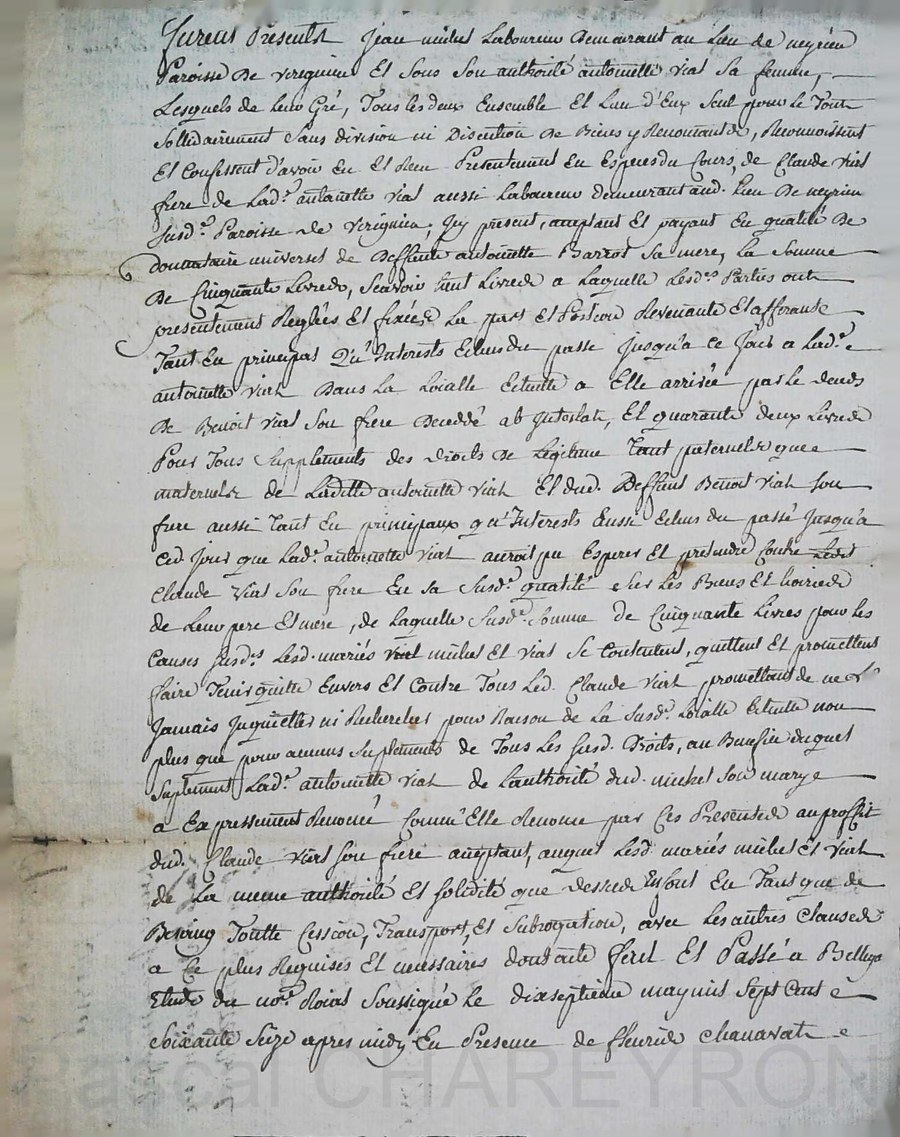 furent Presents Jean michel Laboureur Demeurant au Lieu de neyrieu
Paroisse De verignieu Et Sous Son authorité antoinette vial Sa femme,
Lesquels de Leur Gré, Tous les deux Ensemble Et L'un d'Eux Seul pour Le Tout
Sollidairement Sans division ni Discution De Biens y Renonçants, Reconnoissent
Et Confessent d'avoir Eu Et Reçu Presentement En Especes du Cours, de Claude vial
frere de Lad.e antoinette vial aussi Laboureur demeurant aud. Lieu De neyrieu
Susd.e Paroisse de verignieu, Icy present, acceptant Et payant En qualité De
donnataire universel de Deffunte antoinette Barrot Sa mere, La Somme
De Cinquante Livres, Sçavoir huit Livres a Laquelle Lesd.es Parties ont
presentement Reglées Et fixées La part Et Portion Revenante Et afferante
Tant En principal Qu'Interests Echus du passé jusqu'a ce Jour a Lad.e
antoinette vial Dans La Loialle Echutte a Elle arrivée par Le deceds
De Benoit vial Son frere Decedé ab Intestat, Et quarante deux Livres
Pour Tous Supplements des droits de Legitime Tant paternels que
maternels de Laditte antoinette vial Et dud. Deffunt Benoit vial Son
frere aussi Tant En principaux qu'Interests aussi Echus du passé Jusqu'a
Ced. Jour que Lad.e antoinette vial auroit pu Esperer Et pretendre Contre Ledit
Claude vial Son frere En sa Susd.e qualité Sur Les Biens Et hoiries
de Leur pere Et mere, de Laquelle Susd.e Somme de Cinquante Livres pour les
Causes Susd.es Lesd. mariés vial michel Et vial Se Contentent, quittent Et promettent
faire Tenir quitte Envers Et Contre Tous Led. Claude vial promettant de ne
Jamais Inquietter ni Rechercher pour Raison de La Susd.e Loialle Echutte non
plus que pour aucuns Suplements de Tous Les Susd. Droits, au Benefice duquel
Suplement Lad.e antoinette vial de L'authorité dud. michel Son marye
a Expressement Renoncé Comm'Elle Renonce par Ces Presentes au proffit
dud. Claude vial Son frere acceptant, auquel Lesd. mariés michel Et vial
de La meme authorité Et Solidité que dessus En font En Tant que de
Besoing Toutte Cession, Transport, Et Subrogation, avec Les autres Clauses
a Ce plus Requises Et necessaires dont acte fait Et Passé a
Etude du no.re Roial Soussigné Le dixseptieme may mil Sept Cent
Soixante Seize apres midy En Presence de fleurie Chanavat
Pascal CHAREYRON